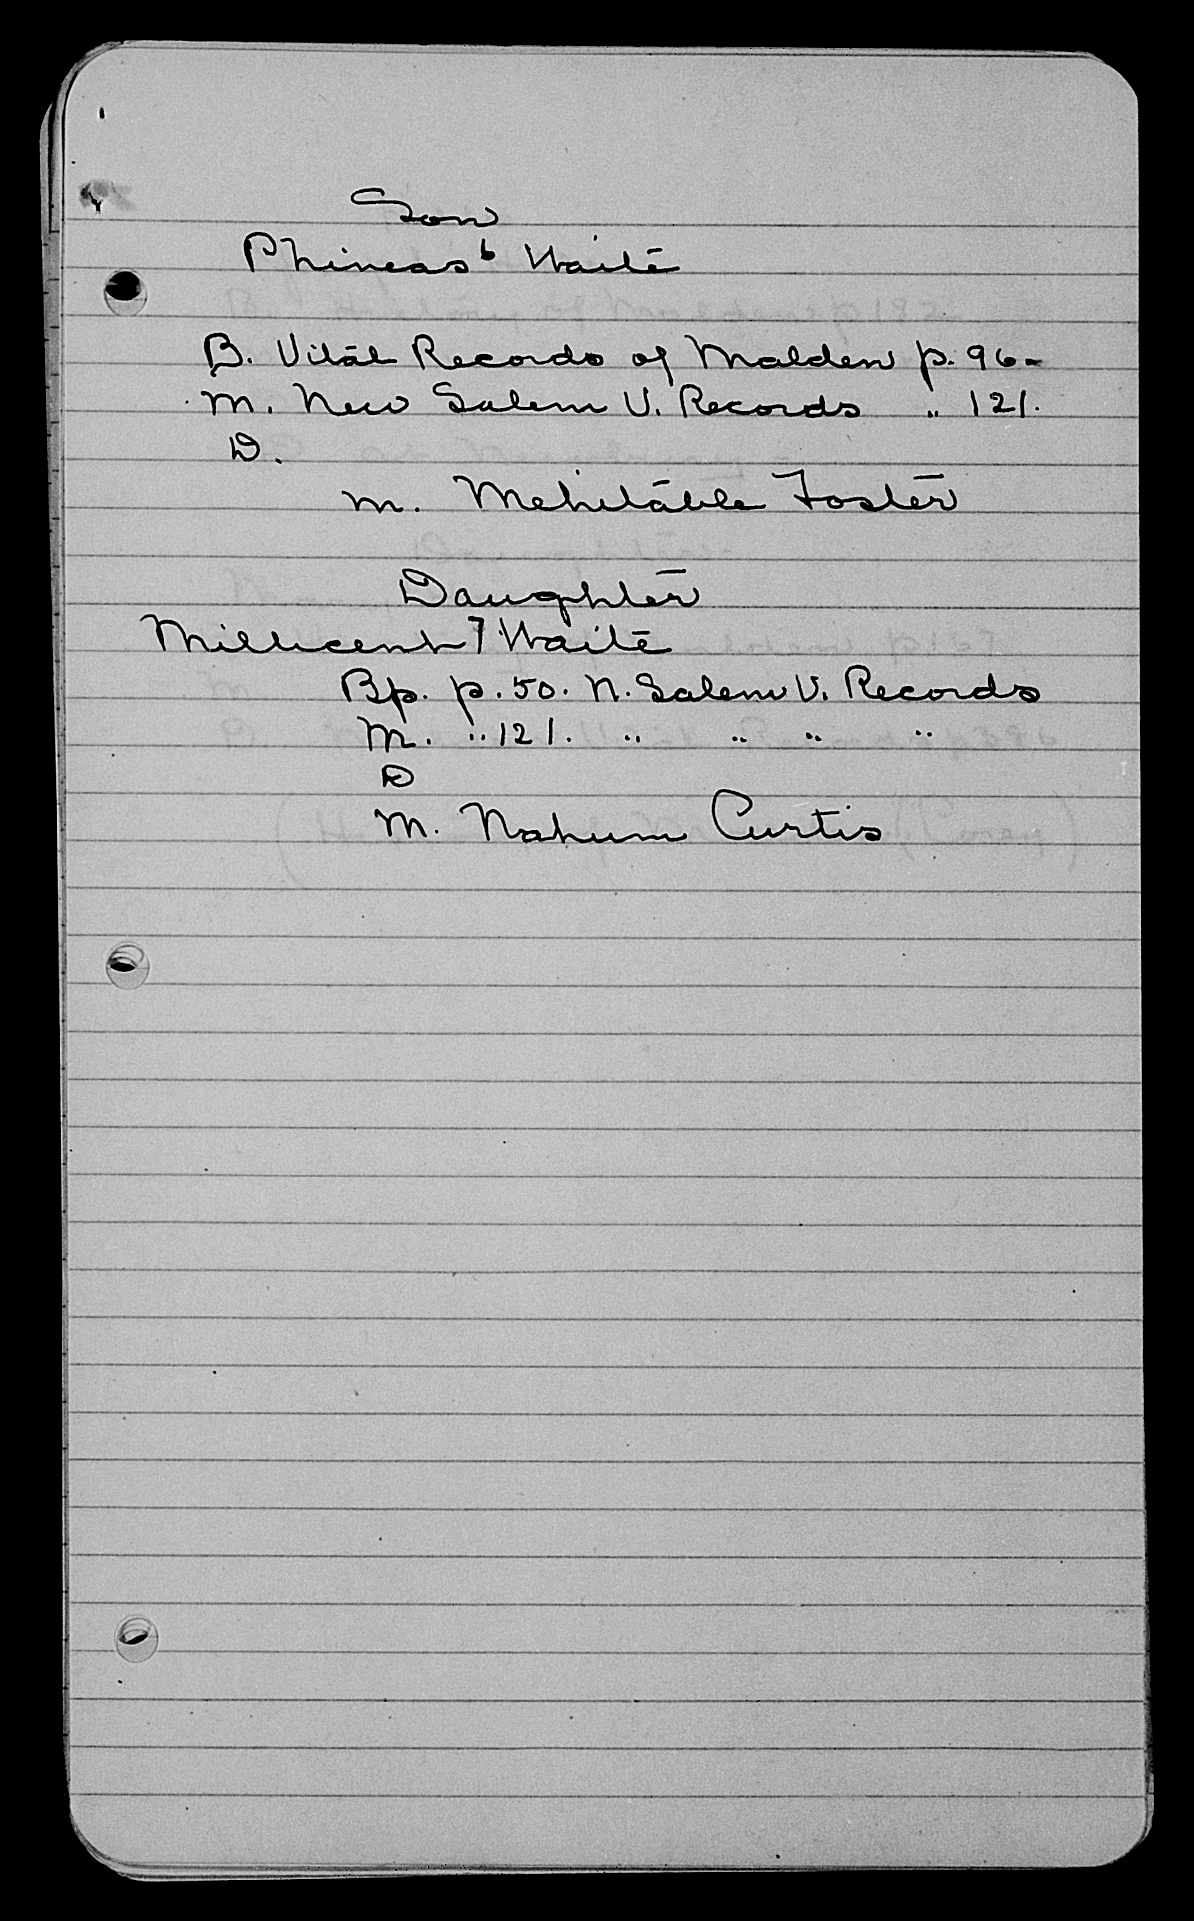 Son
Phineas⁶ Waite
B. Vital Records of Malden p. 96-
M. New Salem V. Records " 121.
D.
m. Mehitable Foster
Daughter
Millicent⁷ Waite
Bp. p. 50. N. Salem V. Records
M. " 121. " " " "
D
M. Nahum Curtis